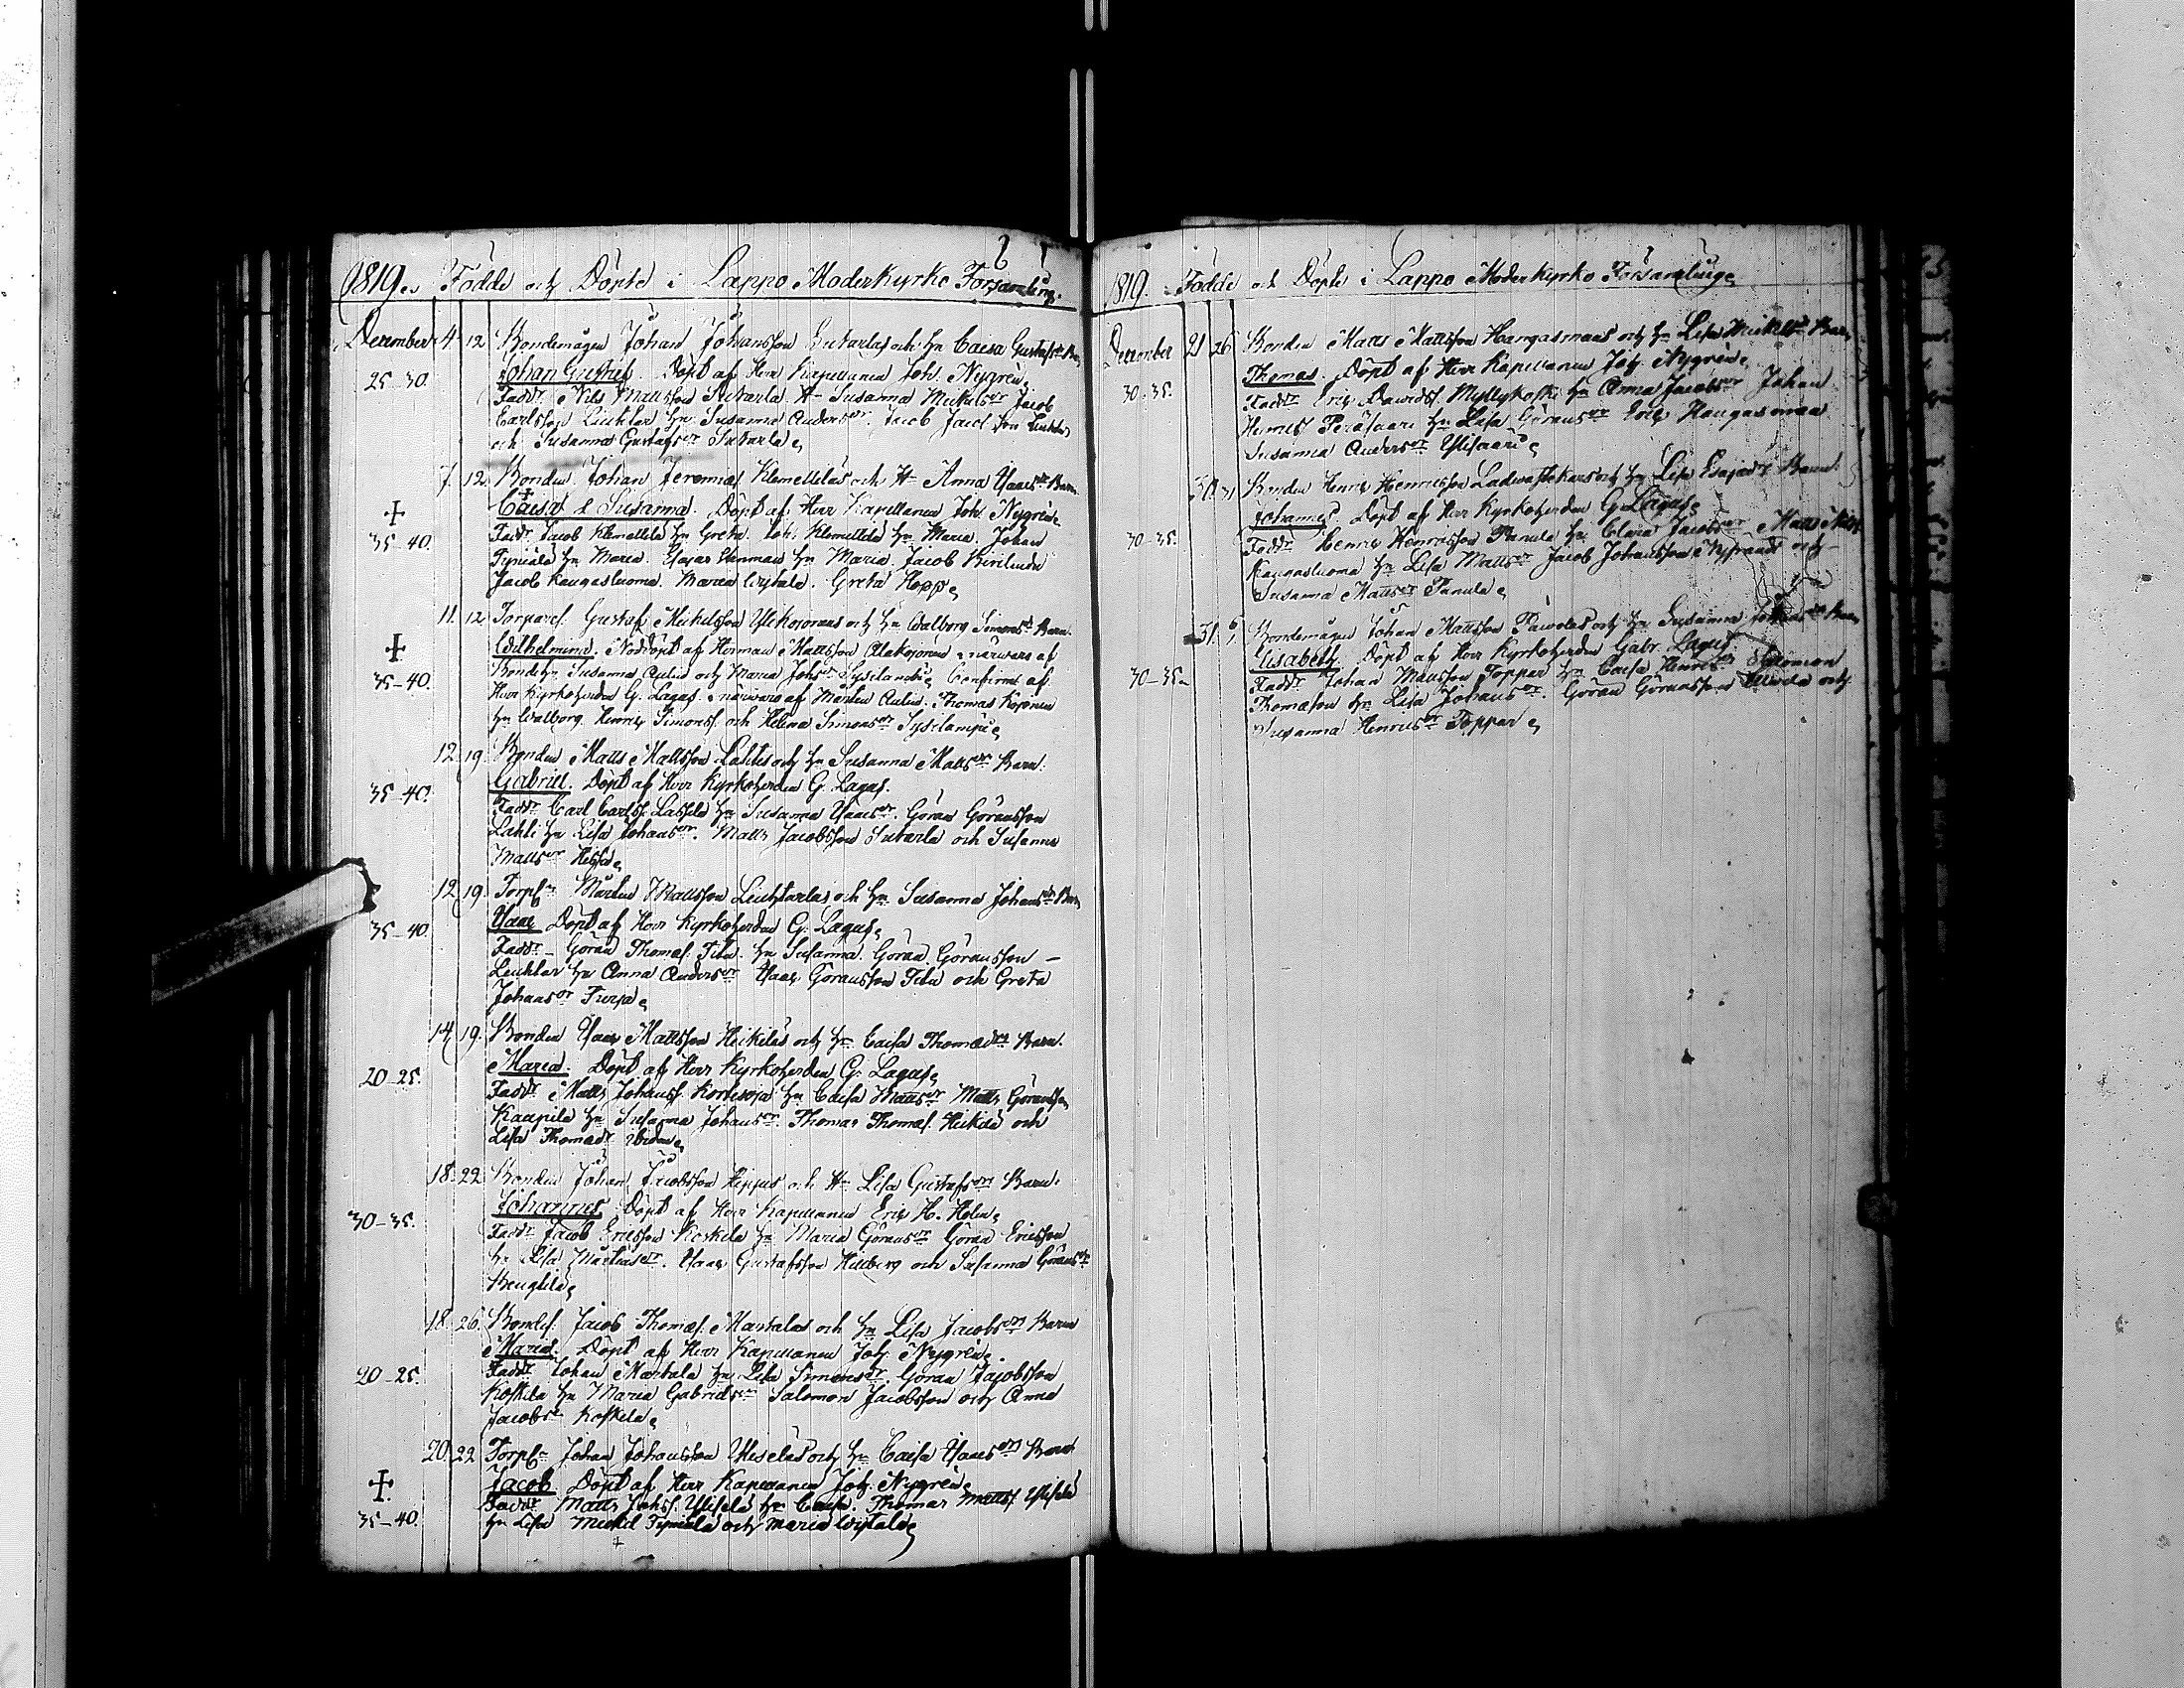 1819. Födde och Döpte i Lappo Moderkyrko Församling.
December 4 12 Bondemågen Johan Johansson Sutarlas och Hu Caisa Gustafsdrs Barn
25-30. Johan Gustaf. Döpt af Herr Kapellanen Joh. Nygrén.
Faddr. Nils Mattsson Sutarla Hu Susanna Mickelsdr Jacob
Carlsson Liuhtar Hu Susanna Andersdr. Jacob
och Susanna Gustafsdr Sutarla
7. 12 Bonden Johan Jeremias Klemettilas och Hu Anna Isaacsdrs Barn
Caisa & Susanna. Döpt af Herr Kapellanen Joh. Nygrén.
35-40. Faddr. Jacob Klemettila Hu Greta. Joh. Klemettila Hu Maria. Johan
Tyniälä Hu Maria. Hu Maria. Jacob
Jacob Kangasluoma. Maria Wistala. Greta Hopp
11. 12 Torparen Gustaf Mickelsson Ylikojonens och Hu Walborg Simonsdrs Barn.
Wilhelmina. Nöddöpt af Herman Mattsson Alakojonen i närwaro af
35-40. Bonde Hu Susanna och Maria Johsdr Confirmt af
Herr Kyrkoherden G. Lagus i närwaro af Mårten Thomas Kojonen
Hu Walborg. Henric Simonss. och Helena Simonsdr
12. 19. Bonden Matts Mattsson Lahtis och Hu Susanna Mattsdrs Barn.
Gabriel. Döpt af Herr Kyrkoherden G. Lagus.
35-40. Faddr. Carl Carlss. Lassila Hu Susanna Isaacsdr. Göran Göransson
Lahti Hu Lisa Johansdr. Matts Jacobsson Sutarla och Susanna
Mattsdr Hissa
12. 19. Torpn Mårten Mattsson Liuhtarlas och Hu Susanna Johansdrs Barn
Isaac Döpt af Herr Kyrkoherden G. Lagus
35-40. Faddr. Göran Thomas. Hu Susanna. Göran Göransson
Liuhtar Hu Anna Andersdr Isaac Göransson och Greta
Johansdr Turja
14. 19. Bonden Isaac Mattsson Heikiläs och Hu Caisa Thomædrs Barn.
Maria. Döpt af Herr Kyrkoherden G. Lagus
20-25. Faddr. Matts Johanss. Kortesoja Hu Caisa Mattsdr Matts Göransson
Kaupila Hu Susanna Johansdr. Thomas Thomæs. Heikilä och
Lisa Thomædr ibidem
18. 22. Bonden Johan Jacobsson Heppus och Hu Lisa Gustafsdrs Barn.
Johannes Döpt af Herr Kapellanen Eric H. Holm
30-35. Faddr. Jacob Ericsson Koskela Hu Maria Göransdr Göran Ericsson
Hu Lisa Mårtensdr. Isaac Gustafsson Hedberg och Susanna Göransdr
18. 26. Bondes. Jacob Thomæs. Martalas och Hu Lisa Jacobsdrs Barn
Maria. Döpt af Herr Kapellanen Joh. Nygrén.
20-25. Faddr. Johan Martala Hu Lisa Simonsdr. Göran Jacobsson
Koskela Hu Maria Gabrielsdr Salomon Jacobsson och Anna
Jacobsdr Koskela
20. 22 Torpn Johan Johansson Ylisäläs och Hu Caisa Isaacsdrs Barn
Jacob Döpt af Herr Kapellanen Joh. Nygrén
Faddr Matts Johss. Ylisälä Hu Caisa. Thomas Mattss. Ylisälä
35-40. Hu Lisa Mickel Tyniälä och Maria Wistala
1819. Födde och Döpte i Lappo Moderkyrko Församling
December 21 26 Bonden Matts Mattsson Haangasmaas och Hu Lisa Mickelsdrs Barn
Thomas. Döpt af Herr Kapellanen Joh. Nygrén
30-35. Faddr Eric Davidss. Myllykoski Hu Anna Jacobsdr Johan
Henricss Peräsaari Hu Lisa Göransdr Eric Haangasmaa
Susanna Andersdr Ylisaari
30. 31 Bonden Henric Henricsson Ladwastekans och Hu Lisa Esajædrs Barn.
Johannes. Döpt af Herr Kyrkoherden G. Lagus
30-35. Faddr Henric Henricsson Panula Hu Clara Jacobsdr Matts
Kangasluoma Hu Lisa Mattsdr Jacob Johansson och
Susanna Mattsdr Panula
31. 6 Bondemågen Johan Mattsson Pawolas och Hu Susanna Barn
Elisabeth. Döpt af Herr Kyrkoherden Gabr. Lagus
30-35. Faddr Johan Mattsson Toppar Hu Caisa Henricsdr Salomon
Thomæson Hu Lisa Johansdr. Göran Göransson och
Susanna Henricsdr Toppar